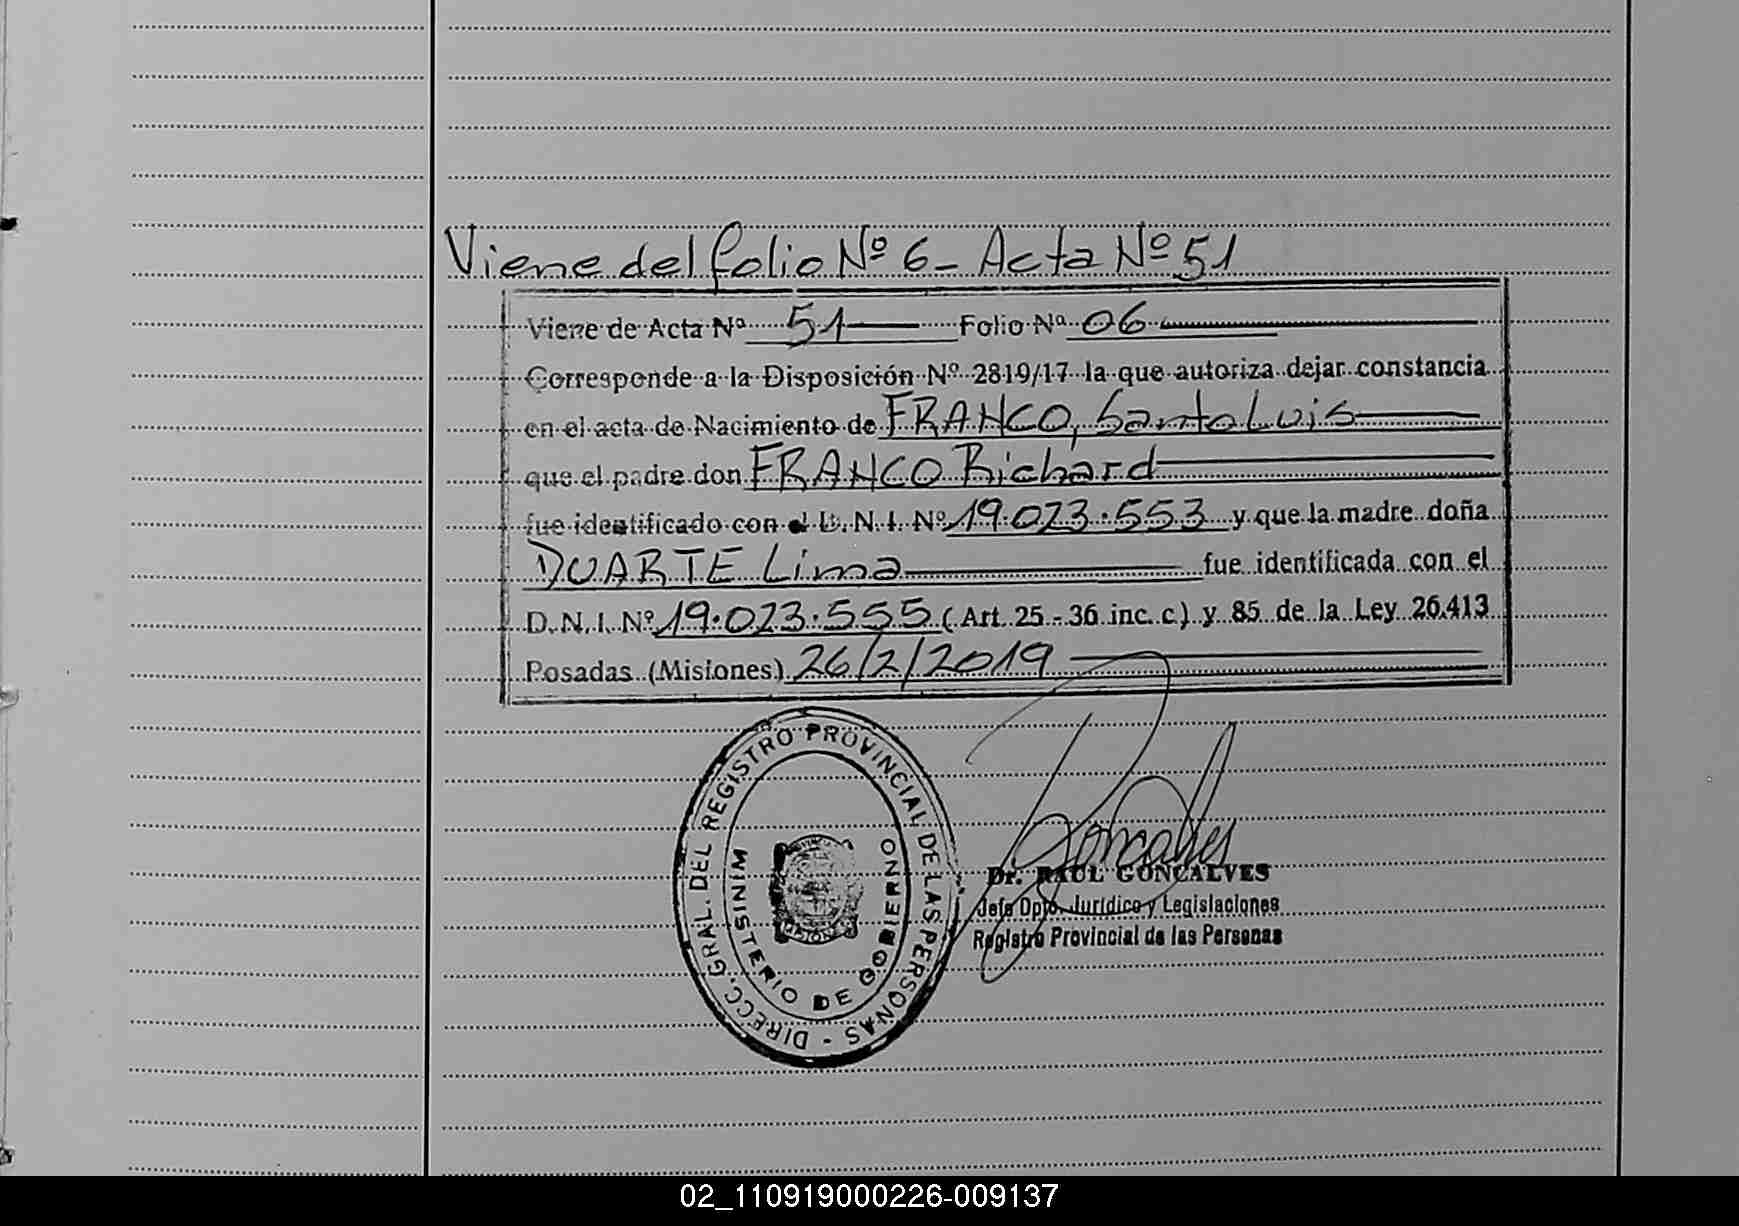 Viene del folio Nº 6 - Acta Nº 51
Viene de Acta Nº 51 Folio Nº 06
Corresponde a la Disposición Nº 2819/17 la que autoriza dejar constancia
en el acta de Nacimiento de FRANCO, Santo Luis
que el padre don FRANCO Richard
fue identificado con el D. N. I. Nº 19.023.553 y que la madre doña
DUARTE Lima fue identificada con el
D. N. I. Nº 19.023.555 (Art. 25 - 36 inc. c) y 85 de la Ley 26.413
Posadas (Misiones) 26/2/2019
DIRECC. GRAL. DEL REGISTRO PROVINCIAL DE LAS PERSONAS -
MINISTERIO DE GOBIERNO
Goncalves
Dr. RAUL GONCALVES
Jefe Dpto. Jurídico y Legislaciones
Registro Provincial de las Personas
02_110919000226-009137